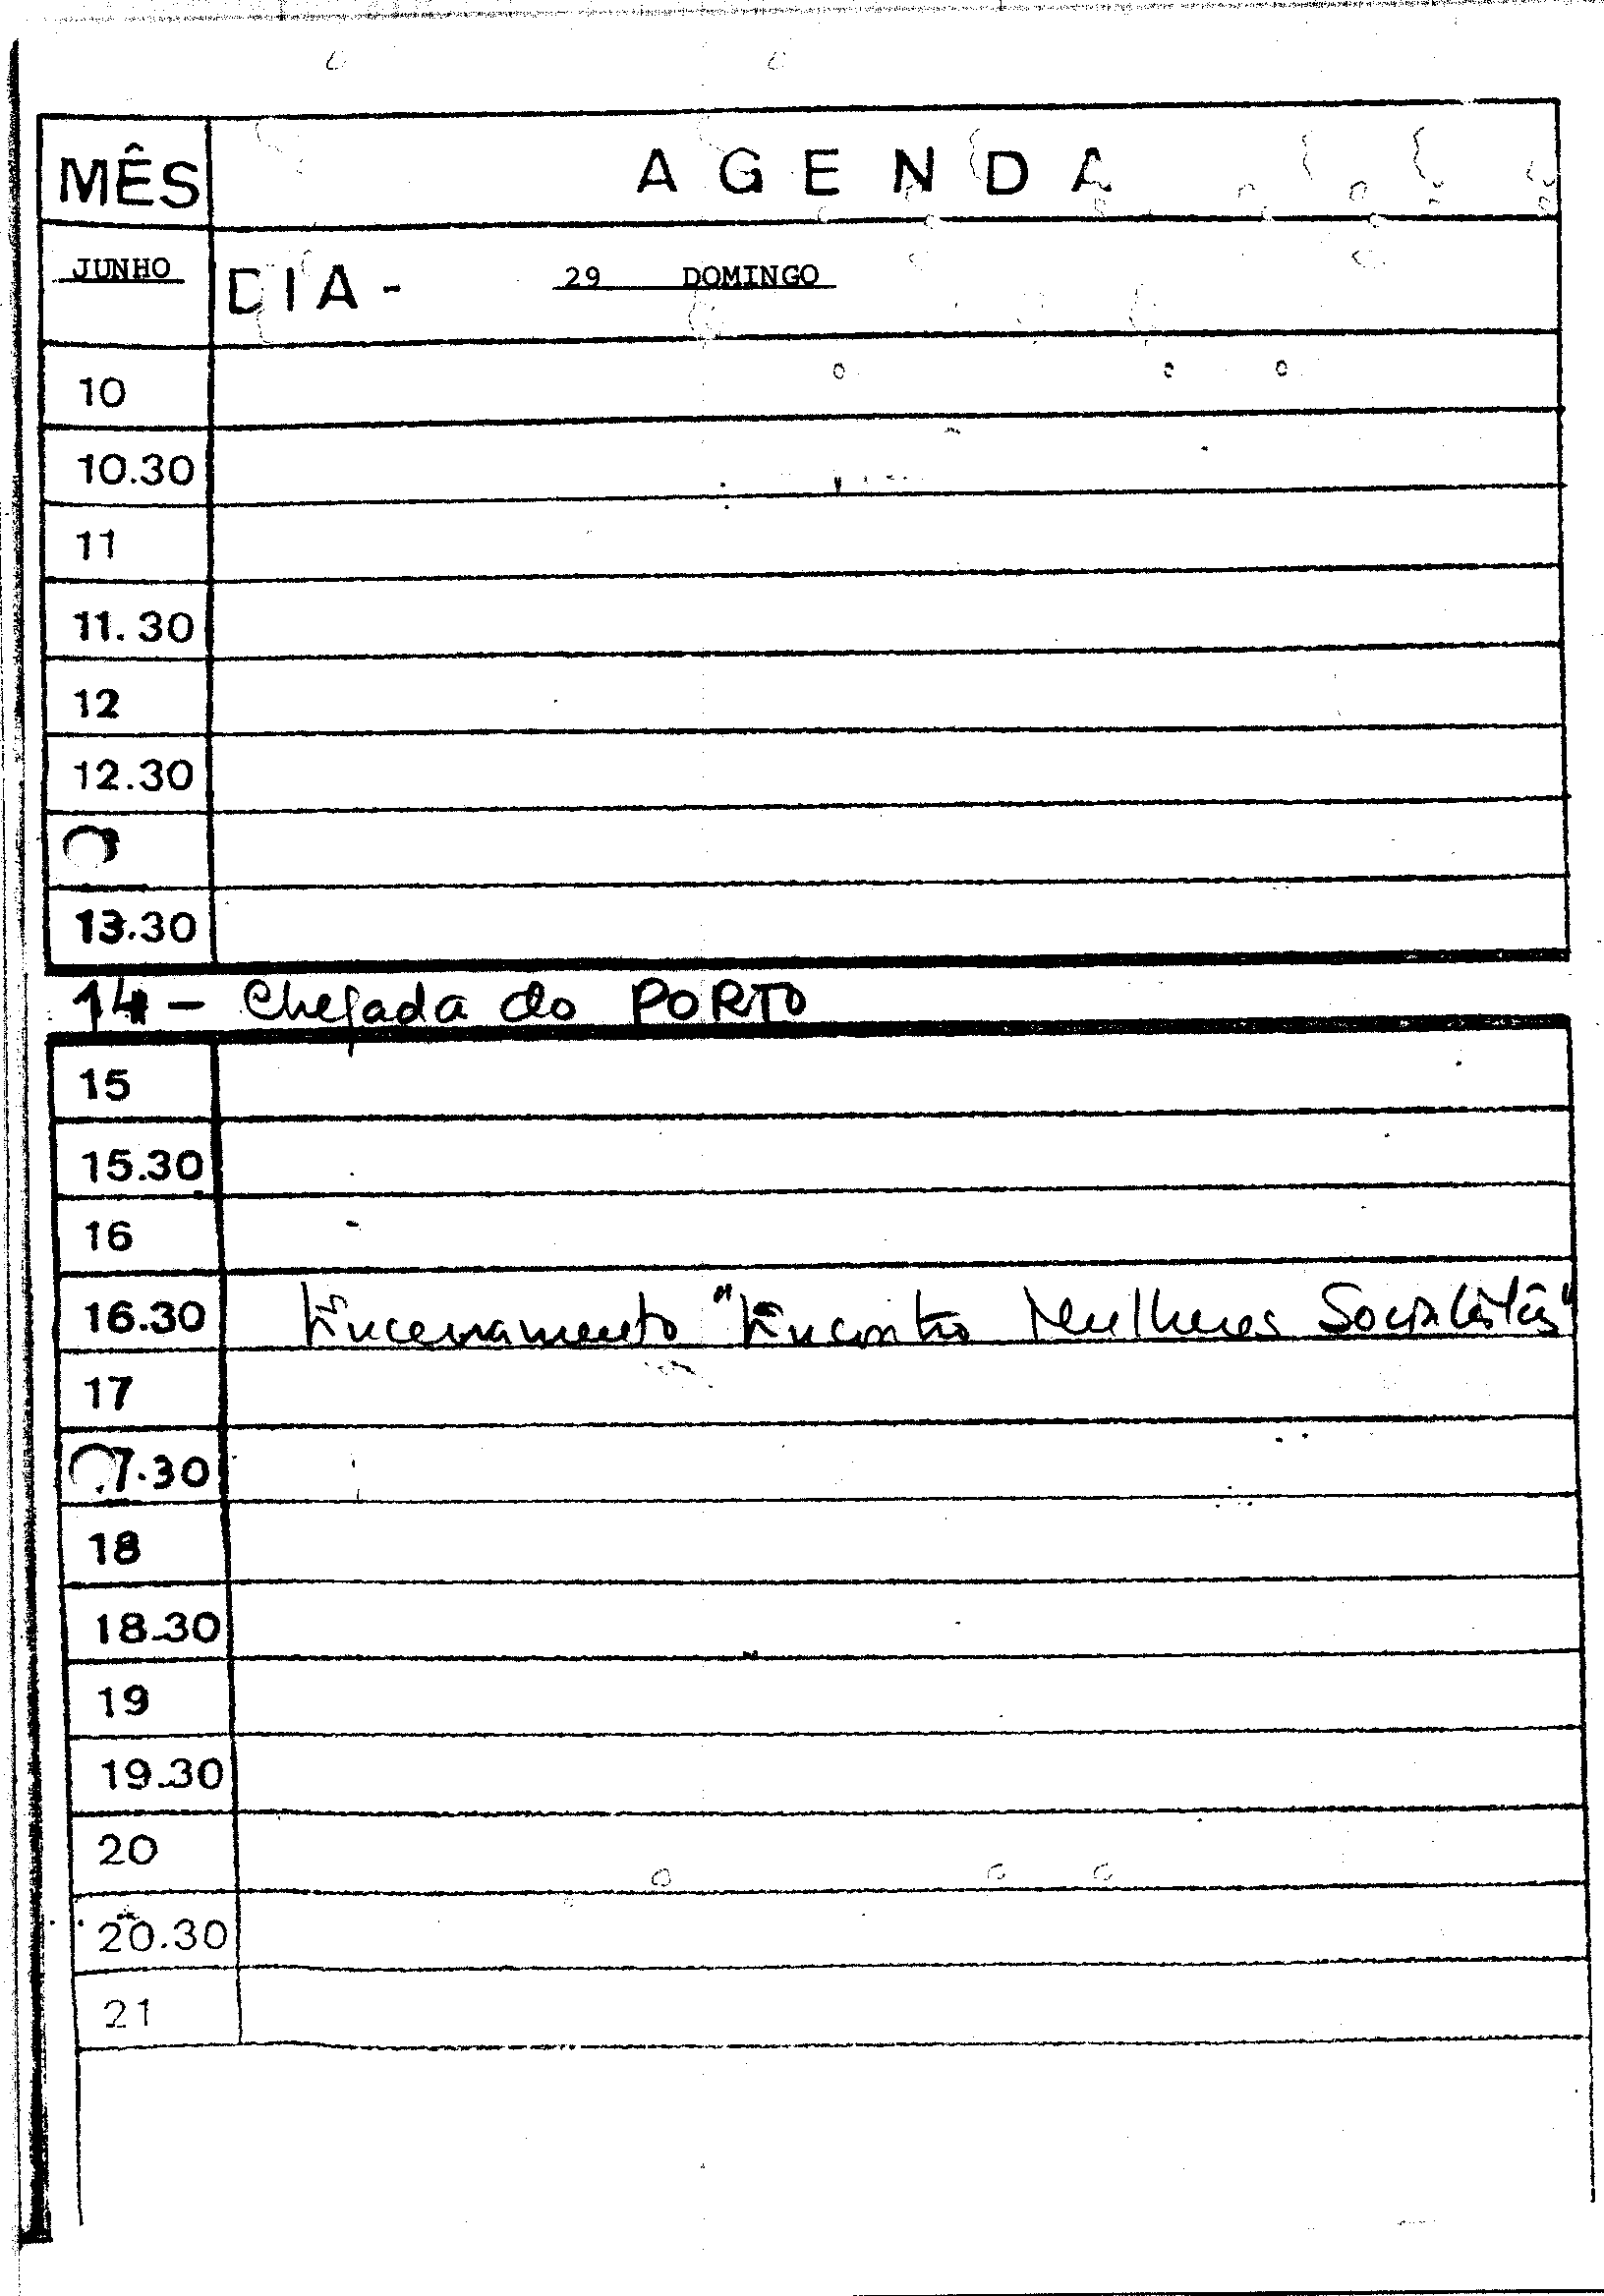 MÊS AGENDA
JUNHO DIA - 29 DOMINGO
10
10.30
11
11.30
12
12.30
13.30
14 - Chegada do PORTO
15
15.30
16
16.30 Encerramento "Encontro Mulheres Socialistas"
17
17.30
18
18.30
19
19.30
20
20.30
21